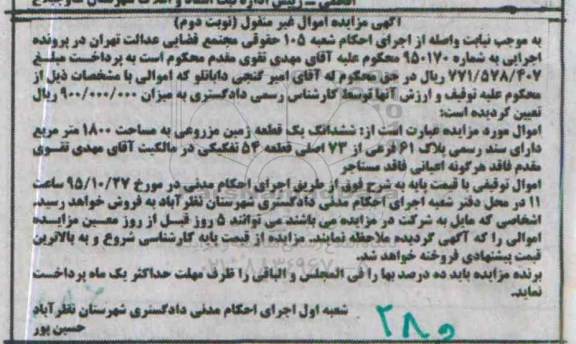 آگهی مزایده اموال غیر منقول (نوبت دوم)
به موجب نیابت واصله از اجرای احکام شعبه ۱۰۵ حقوقی مجتمع قضایی عدالت تهران در پرونده
اجرایی به شماره ۹۵۰۱۷۰ محکوم علیه آقای مهدی تقوی مقدم محکوم است به پرداخت مبلغ
۷۷۱/۵۷۸/۴۰۷ ریال در حق محکوم له آقای امیر گنجی دابانلو که اموالی با مشخصات ذیل از
محکوم علیه توقیف و ارزش آنها توسط کارشناس رسمی دادگستری به میزان ۹۰۰/۰۰۰/۰۰۰ ریال
تعیین گردیده است:
اموال مورد مزایده عبارت است از: ششدانگ یک قطعه زمین مزروعی به مساحت ۱۸۰۰ متر مربع
دارای سند رسمی پلاک ۶۱ فرعی از ۷۳ اصلی قطعه ۵۴ تفکیکی در مالکیت آقای مهدی تقوی
مقدم فاقد هرگونه اعیانی فاقد مستاجر
اموال توقیفی با قیمت پایه به شرح فوق از طریق اجرای احکام مدنی در مورخ ۹۵/۱۰/۲۷ ساعت
۱۱ در محل دفتر شعبه اجرای احکام مدنی دادگستری شهرستان نظرآباد به فروش خواهد رسید.
اشخاصی که مایل به شرکت در مزایده می باشند می توانند ۵ روز قبل از روز معین مزایده
اموالی را که آگهی گردیده ملاحظه نمایند. مزایده از قیمت پایه کارشناسی شروع و به بالاترین
قیمت پیشنهادی فروخته خواهد شد.
برنده مزایده باید ده درصد بها را فی المجلس و الباقی را ظرف مهلت حداکثر یک ماه پرداخت
نماید.
شعبه اول اجرای احکام مدنی دادگستری شهرستان نظرآباد
حسین پور